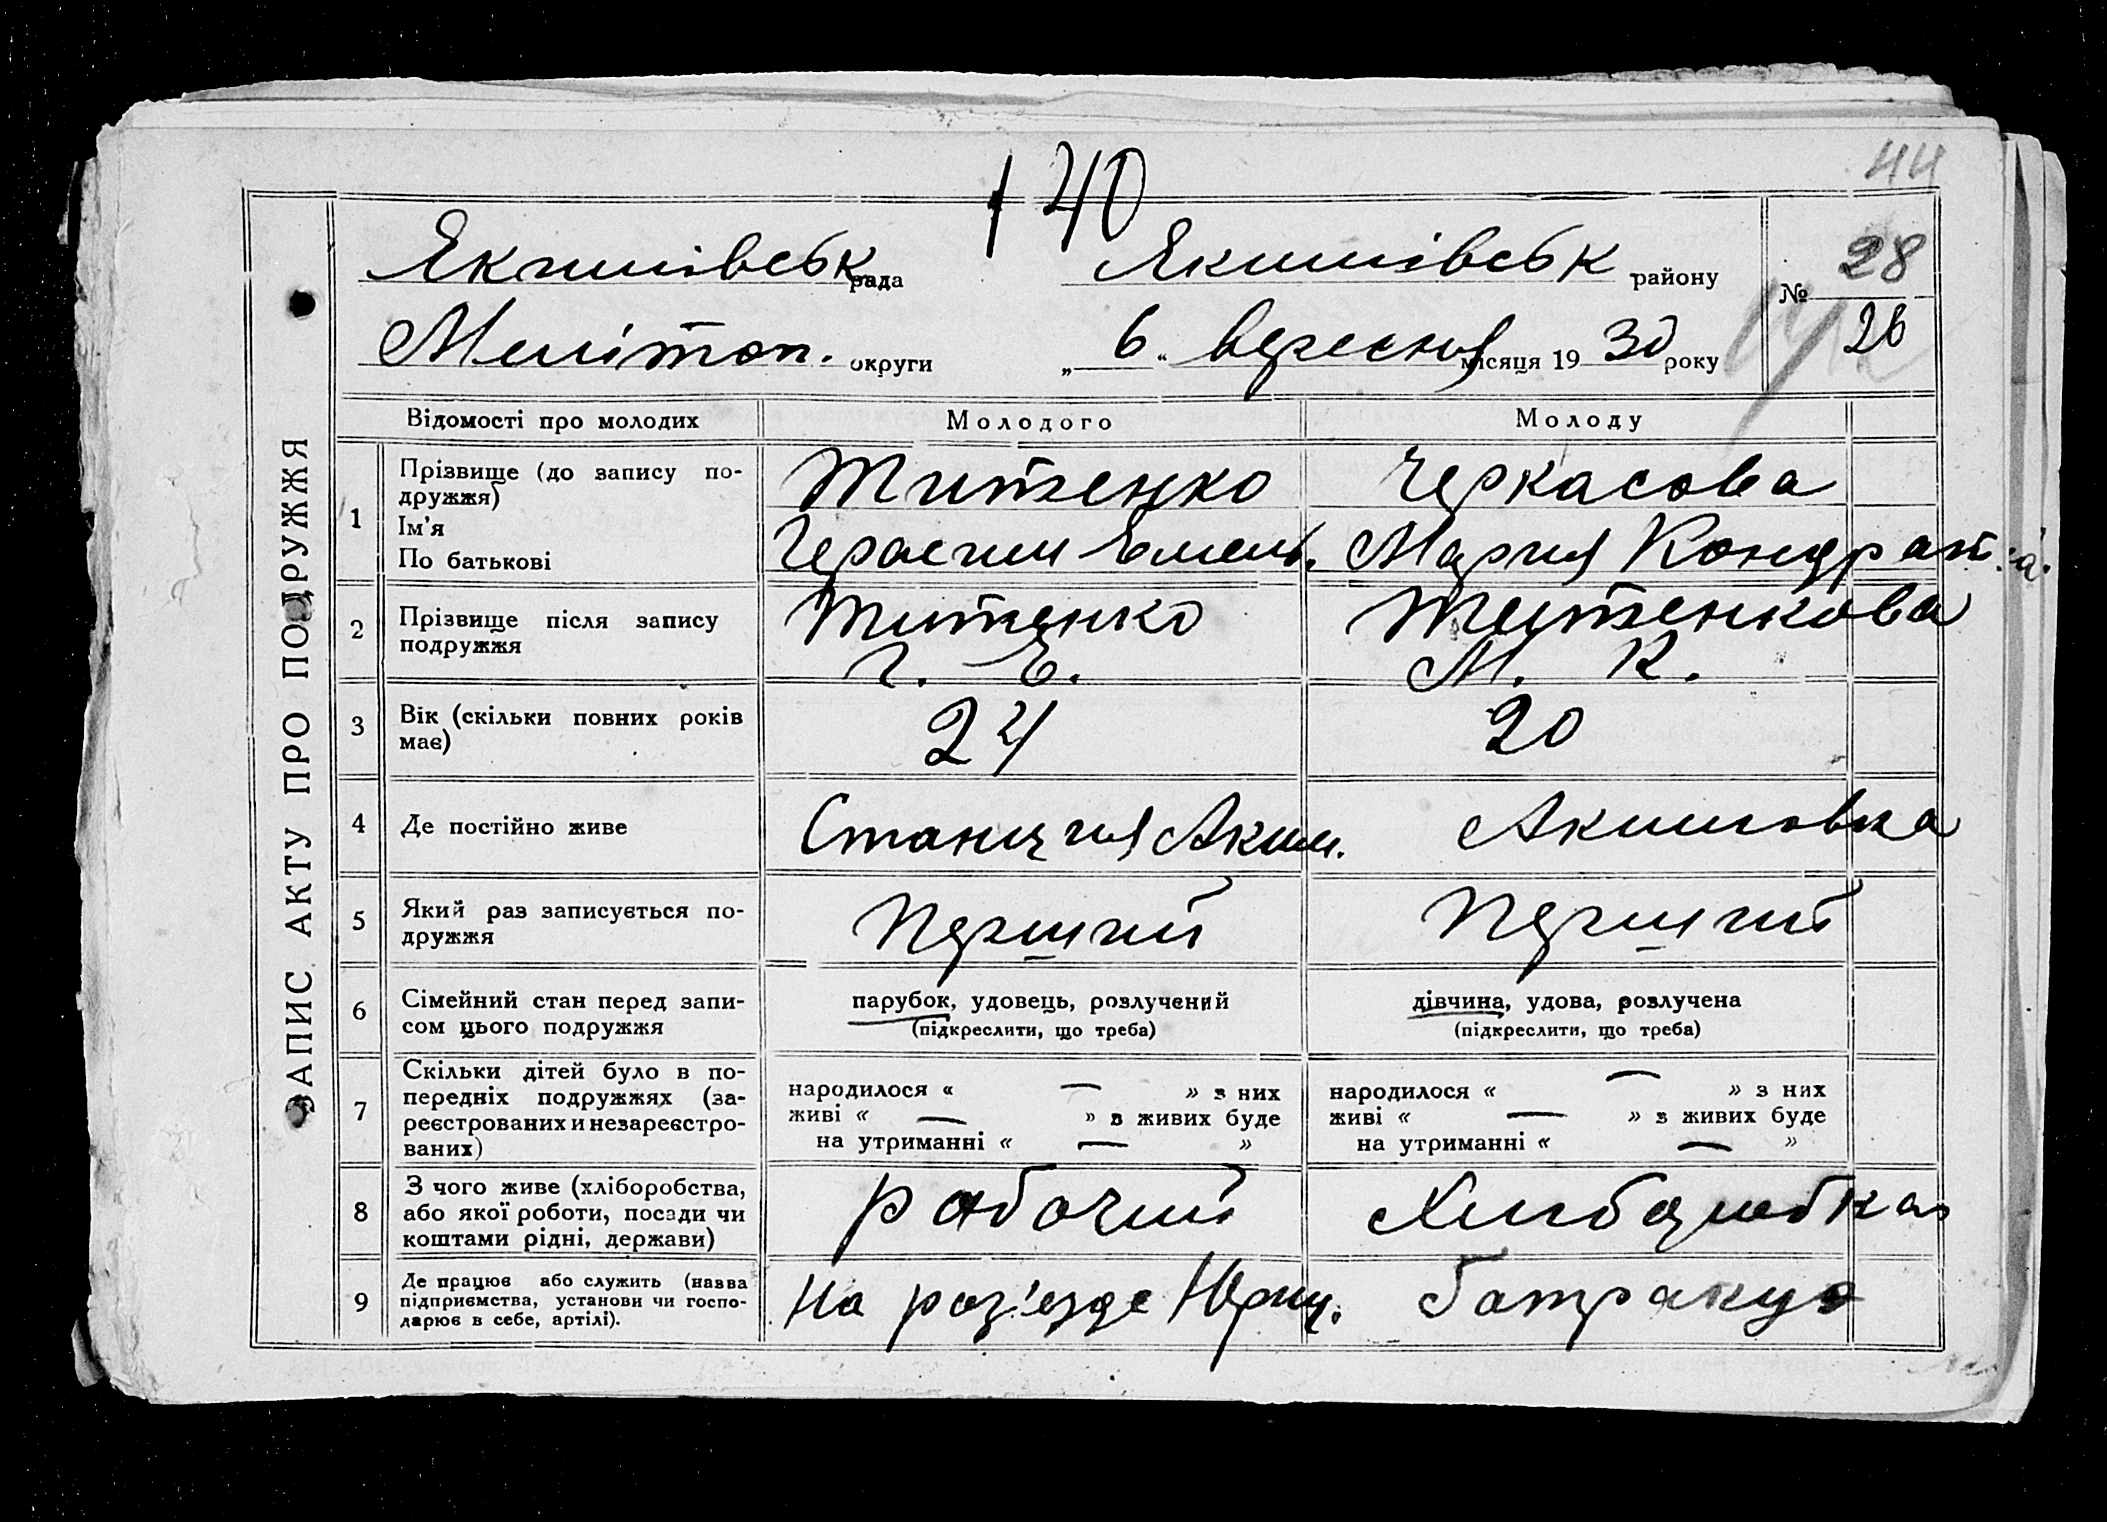 44
140
Якимівськ рада Якимівськ району № 28
Меlітоп. округи „ 6 " вересня місяця 19 30 року 26
ЗАПИС АКТУ ПРО ПОДРУЖЖЯ
Відомості про молодих Молодого Молоду
1 Прізвище (до запису по-
дружжя) Титенко Черкасова
Ім'я
По батькові Герасим Емельь. Мария Кондрат.
2 Прізвище після запису
подружжя Титенко Титенкова
Г. Е. М. К.
3 Вік (скільки повних років
має) 24 20
4 Де постійно живе Станция Аким. Акимовка
5 Який раз записується по-
дружжя Перший Перший
6 Сімейний стан перед запи-
сом цього подружжя парубок, удовець, розлучений дівчина, удова, розлучена
(підкреслити, що треба) (підкреслити, що треба)
7 Скільки дітей було в по-
передніх подружжях (за-
реєстрованих и незареєстро-
ваних)
народилося « — » з них народилося « — » з них
живі « — » з живих буде живі « — » з живих буде
на утриманні « — » на утриманні « — »
8 З чого живе (хліборобства,
або якої роботи, посади чи
коштами рідні, держави) Рабочий
9 Де працює або служить (назва
підприємства, установи чи госпо-
дарює в себе, артілі). На роз'езде